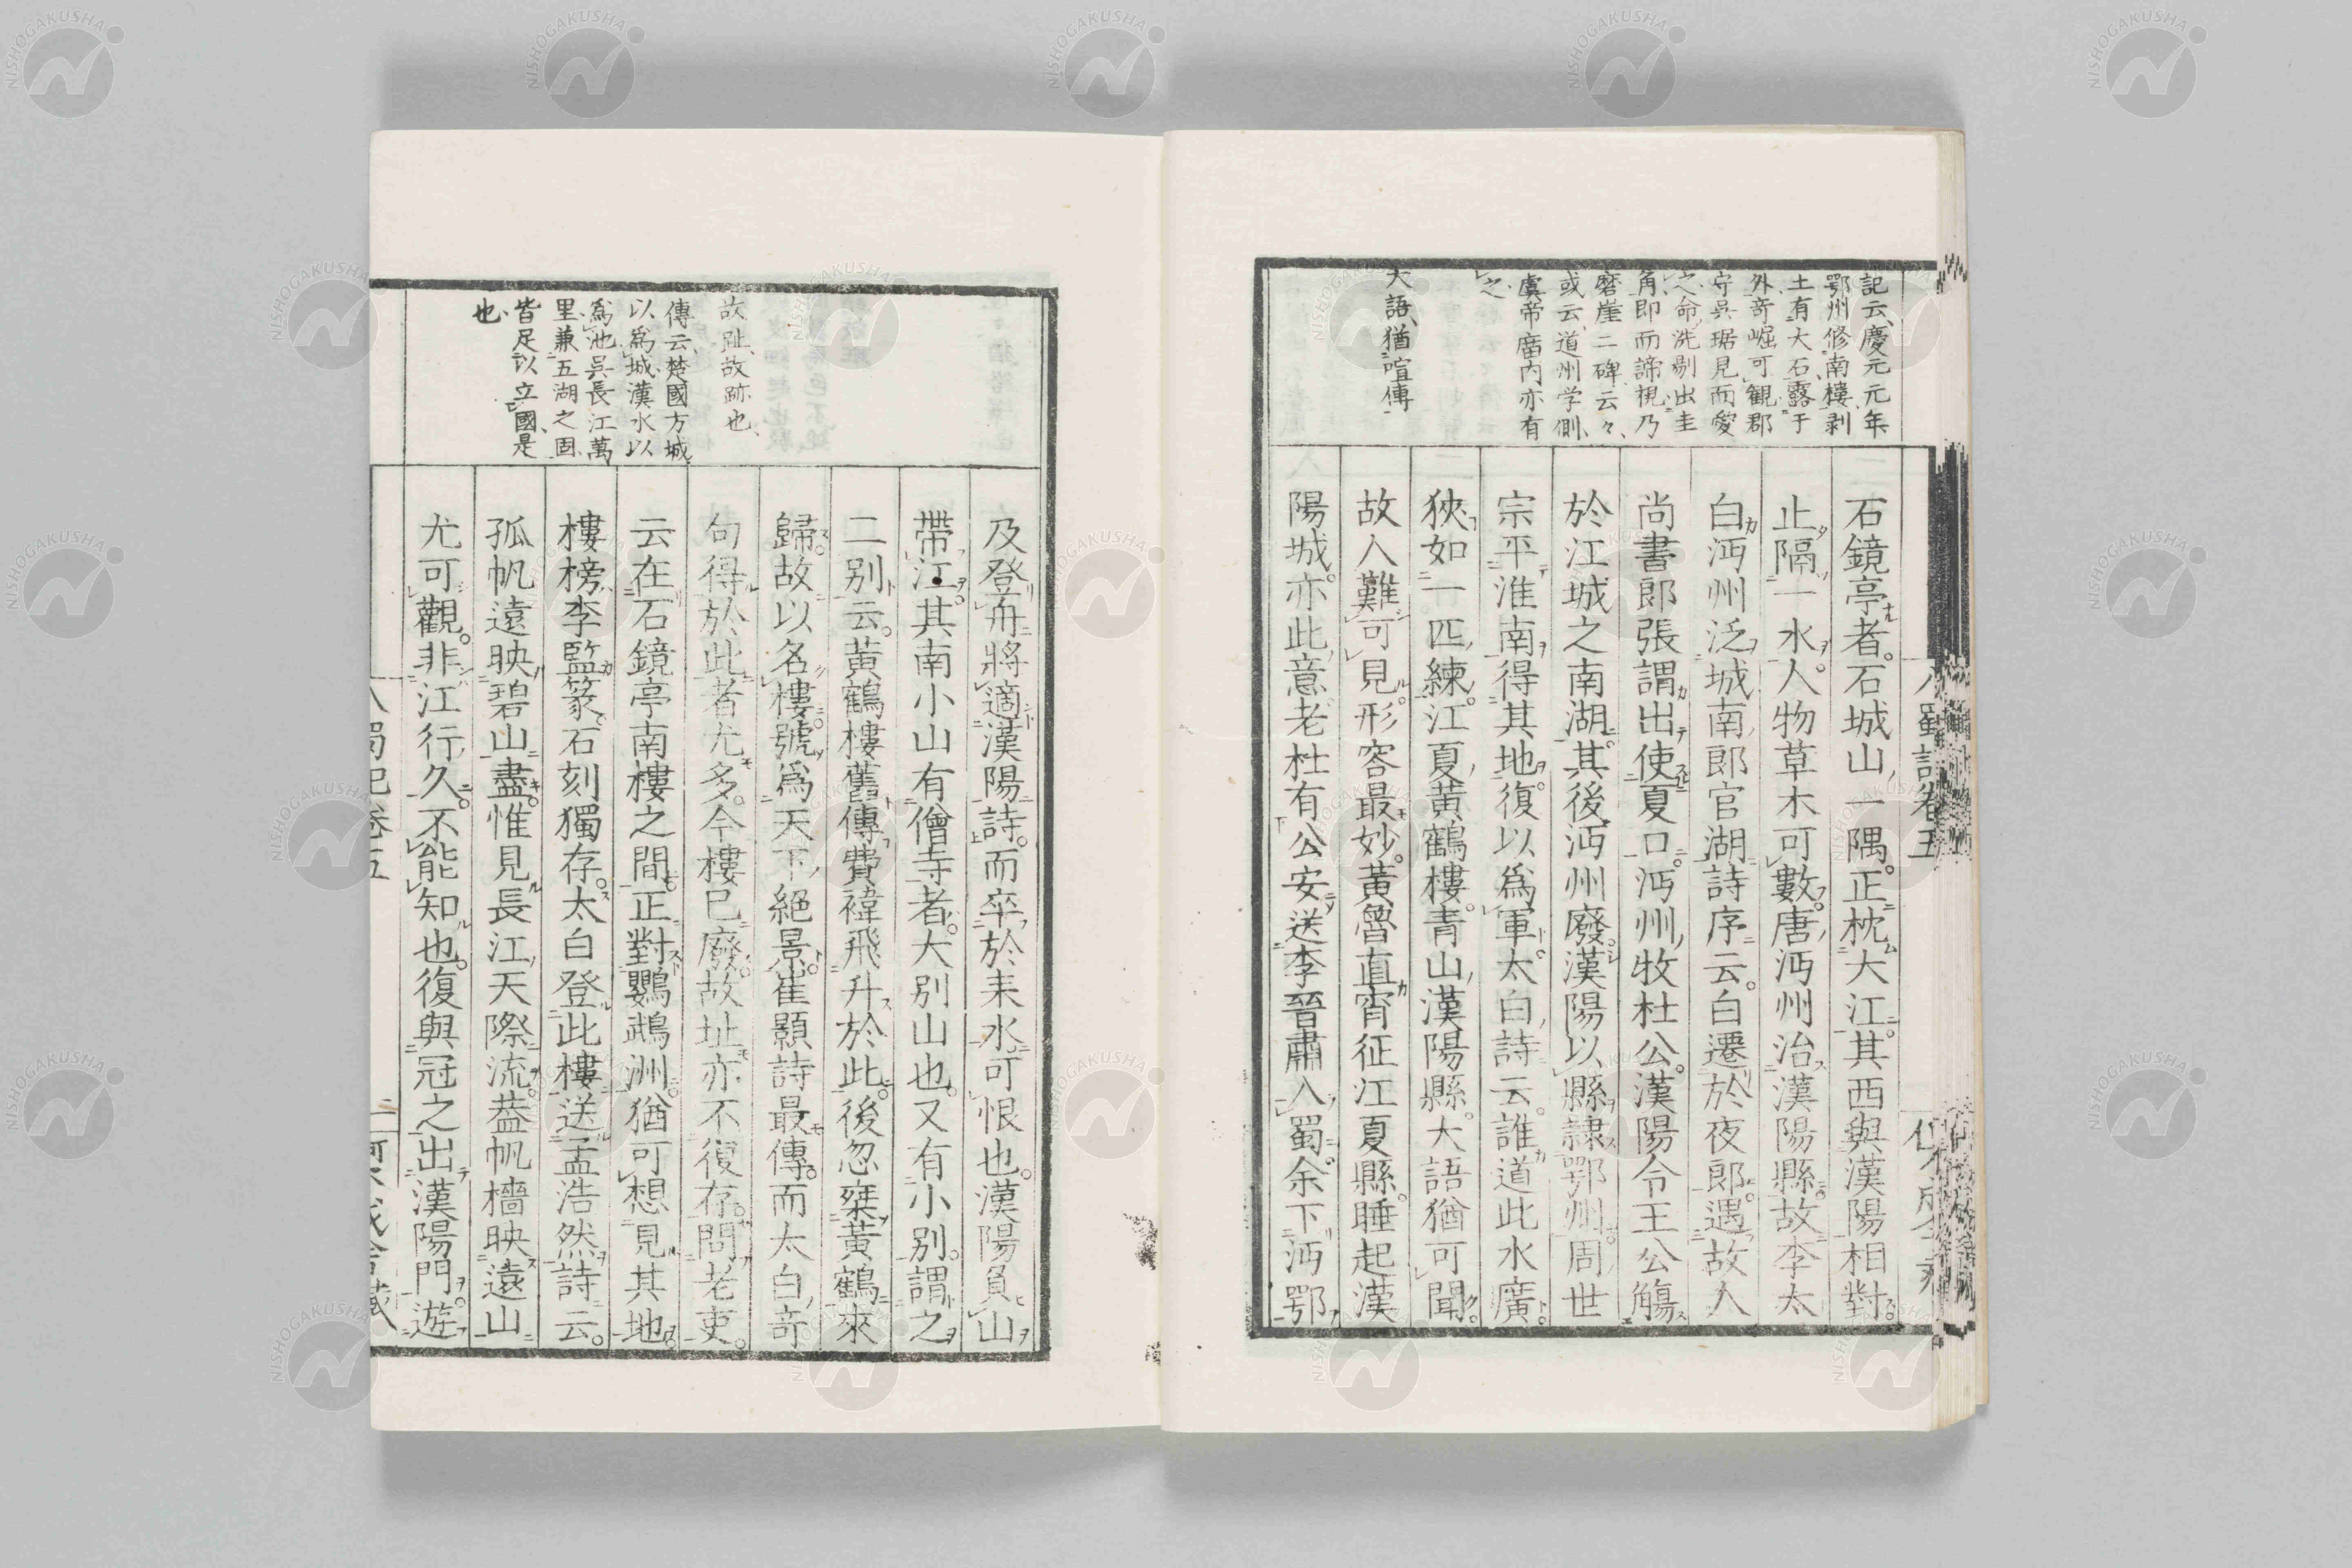 記云慶元元年
鄂州修南樓剥
土有大石露于
外竒崛可觀郡
守呉琚見而愛
之命洗剔出圭
角即而諦視乃
磨崖二碑云々
或云道州学側
虞帝庿内亦有
之
大語猶喧傳
石鏡亭者石城山一隅正枕大江其西與漢陽相對
止隔一水人物草木可數唐沔州治漢陽縣故李太
白沔州泛城南郎官湖詩序云白遷於夜郎遇故人
尚書郎張謂出使夏口沔州牧杜公漢陽令王公觴
於江城之南湖其後沔州廢漢陽以縣隷鄂州周世
宗平淮南得其地復以爲軍太白詩云誰道此水廣
狹如一匹練江夏黃鶴樓青山漢陽縣大語猶可聞
故人難可見形容最妙黃魯直宵征江夏縣睡起漢
陽城亦此意老杜有公安送李晉肅入蜀余下沔鄂
故趾故跡也
傳云楚國方城
以爲城漢水以
爲池呉長江萬
里兼五湖之固
皆足以立國是
也
及登舟將適漢陽詩而卒於耒水可恨也漢陽負山
帶江其南小山有僧寺者大別山也又有小別謂之
二別云黃鶴樓舊傳費褘飛升於此後忽椉黃鶴來
歸故以名樓號爲天下絕景崔顥詩最傳而太白竒
句得於此者尤多今樓已廢故址亦不復存問老吏
云在石鏡亭南樓之間正對鸚鵡洲猶可想見其地
樓榜李監篆石刻獨存太白登此樓送孟浩然詩云
孤帆遠映碧山盡惟見長江天際流葢帆檣映遠山
尤可觀非江行久不能知也復與冠之出漢陽門遊
入蜀記卷五
NISHOGAKUSHA